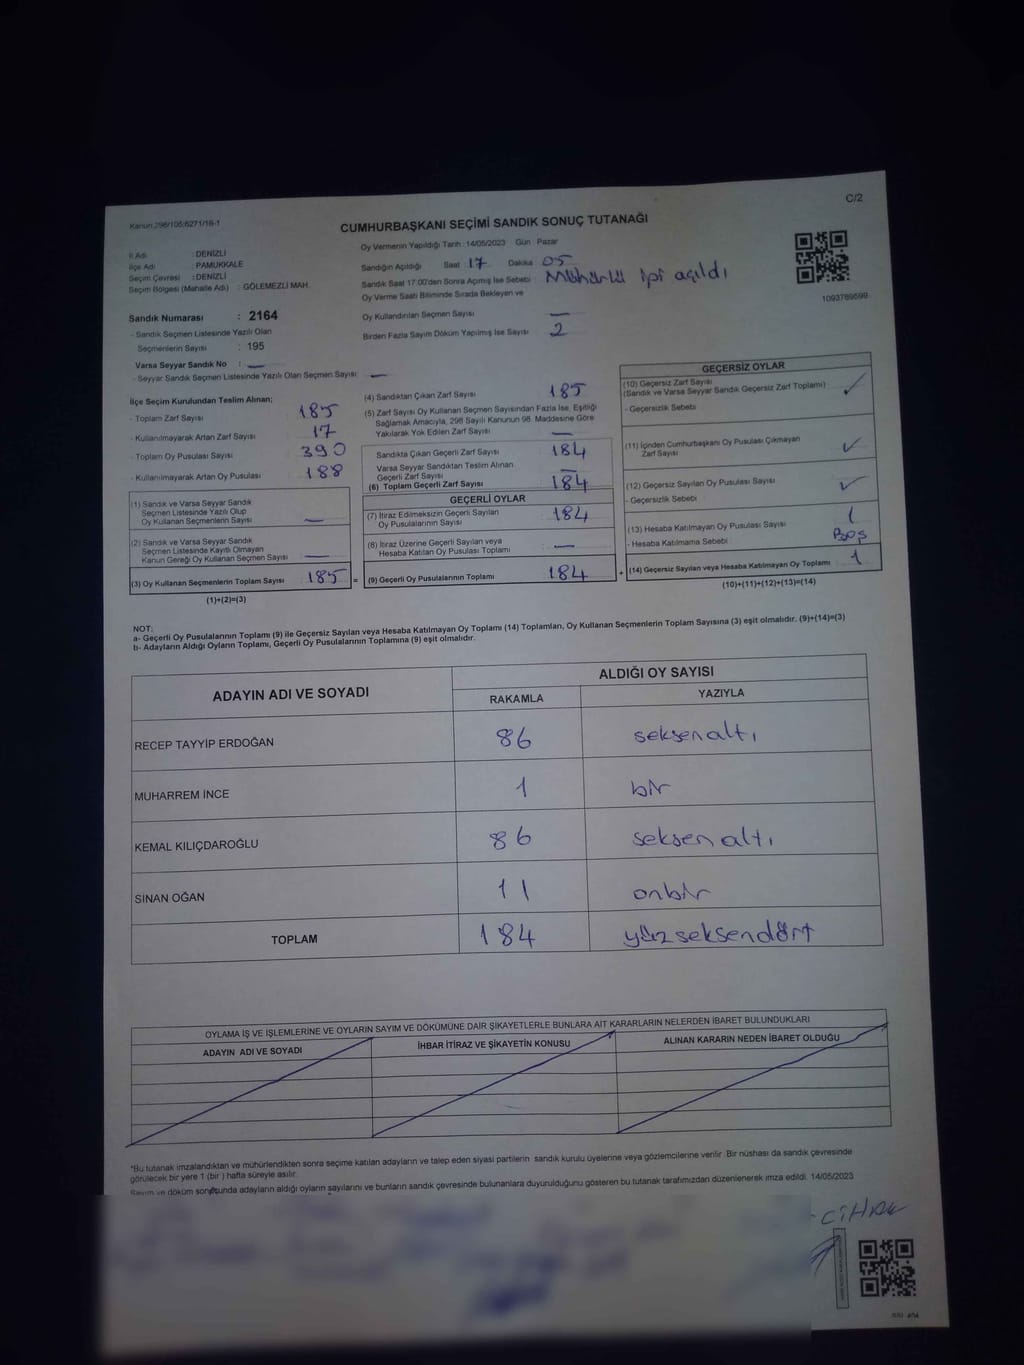 C/2
Kanun:298/105;6271/18-1
CUMHURBAŞKANI SEÇİMİ SANDIK SONUÇ TUTANAĞI
İl Adı : DENİZLİ
İlçe Adı : PAMUKKALE
Seçim Çevresi : DENİZLİ
Seçim Bölgesi (Mahalle Adı) : GÖLEMEZLİ MAH.
Oy Vermenin Yapıldığı Tarih : 14/05/2023 Gün : Pazar
Sandığın Açıldığı Saat : 17 Dakika : 05
Sandık Saat 17:00'den Sonra Açımış İse Sebebi : Mühürlü ipi açıldı
Oy Verme Saati Bitiminde Sırada Bekleyen ve
Oy Kullandırılan Seçmen Sayısı —
Birden Fazla Sayım Döküm Yapılmış İse Sayısı 2
1093789599
Sandık Numarası : 2164
- Sandık Seçmen Listesinde Yazılı Olan
Seçmenlerin Sayısı : 195
Varsa Seyyar Sandık No : —
- Seyyar Sandık Seçmen Listesinde Yazılı Olan Seçmen Sayısı: —
İlçe Seçim Kurulundan Teslim Alınan;
- Toplam Zarf Sayısı 185
- Kullanılmayarak Artan Zarf Sayısı 17
- Toplam Oy Pusulası Sayısı 390
- Kullanılmayarak Artan Oy Pusulası 188
(1) Sandık ve Varsa Seyyar Sandık
Seçmen Listesinde Yazılı Olup
Oy Kullanan Seçmenlerin Sayısı —
(2) Sandık ve Varsa Seyyar Sandık
Seçmen Listesinde Kayıtlı Olmayan
Kanun Gereği Oy Kullanan Seçmen Sayısı —
(3) Oy Kullanan Seçmenlerin Toplam Sayısı 185 =
(1)+(2)=(3)
(4) Sandıktan Çıkan Zarf Sayısı 185
(5) Zarf Sayısı Oy Kullanan Seçmen Sayısından Fazla İse, Eşitliği
Sağlamak Amacıyla, 298 Sayılı Kanunun 98. Maddesine Göre
Yakılarak Yok Edilen Zarf Sayısı —
Sandıkta Çıkan Geçerli Zarf Sayısı 184
Varsa Seyyar Sandıktan Teslim Alınan
Geçerli Zarf Sayısı —
(6) Toplam Geçerli Zarf Sayısı 184
GEÇERLİ OYLAR
(7) İtiraz Edilmeksizin Geçerli Sayılan
Oy Pusulalarının Sayısı 184
(8) İtiraz Üzerine Geçerli Sayılan veya
Hesaba Katılan Oy Pusulası Toplamı —
(9) Geçerli Oy Pusulalarının Toplamı 184 +
GEÇERSİZ OYLAR
(10) Geçersiz Zarf Sayısı
(Sandık ve Varsa Seyyar Sandık Geçersiz Zarf Toplamı) ✓
- Geçersizlik Sebebi
(11) İçinden Cumhurbaşkanı Oy Pusulası Çıkmayan
Zarf Sayısı ✓
(12) Geçersiz Sayılan Oy Pusulası Sayısı ✓
- Geçersizlik Sebebi
(13) Hesaba Katılmayan Oy Pusulası Sayısı 1
- Hesaba Katılmama Sebebi Boş
(14) Geçersiz Sayılan veya Hesaba Katılmayan Oy Toplamı 1
(10)+(11)+(12)+(13)=(14)
NOT:
a- Geçerli Oy Pusulalarının Toplamı (9) ile Geçersiz Sayılan veya Hesaba Katılmayan Oy Toplamı (14) Toplamları, Oy Kullanan Seçmenlerin Toplam Sayısına (3) eşit olmalıdır. (9)+(14)=(3)
b- Adayların Aldığı Oyların Toplamı, Geçerli Oy Pusulalarının Toplamına (9) eşit olmalıdır.
ADAYIN ADI VE SOYADI ALDIĞI OY SAYISI
RAKAMLA YAZIYLA
RECEP TAYYİP ERDOĞAN 86 seksenaltı
MUHARREM İNCE 1 bir
KEMAL KILIÇDAROĞLU 86 seksenaltı
SİNAN OĞAN 11 onbir
TOPLAM 184 yüzseksendört
OYLAMA İŞ VE İŞLEMLERİNE VE OYLARIN SAYIM VE DÖKÜMÜNE DAİR ŞİKAYETLERLE BUNLARA AİT KARARLARIN NELERDEN İBARET BULUNDUKLARI
ADAYIN ADI VE SOYADI İHBAR İTİRAZ VE ŞİKAYETİN KONUSU ALINAN KARARIN NEDEN İBARET OLDUĞU
*Bu tutanak imzalandıktan ve mühürlendikten sonra seçime katılan adayların ve talep eden siyasi partilerin sandık kurulu üyelerine veya gözlemcilerine verilir. Bir nüshası da sandık çevresinde
görülecek bir yere 1 (bir ) hafta süreyle asılır.
Sayım ve döküm sonucunda adayların aldığı oyların sayılarını ve bunların sandık çevresinde bulunanlara duyurulduğunu gösteren bu tutanak tarafımızdan düzenlenerek imza edildi. 14/05/2023